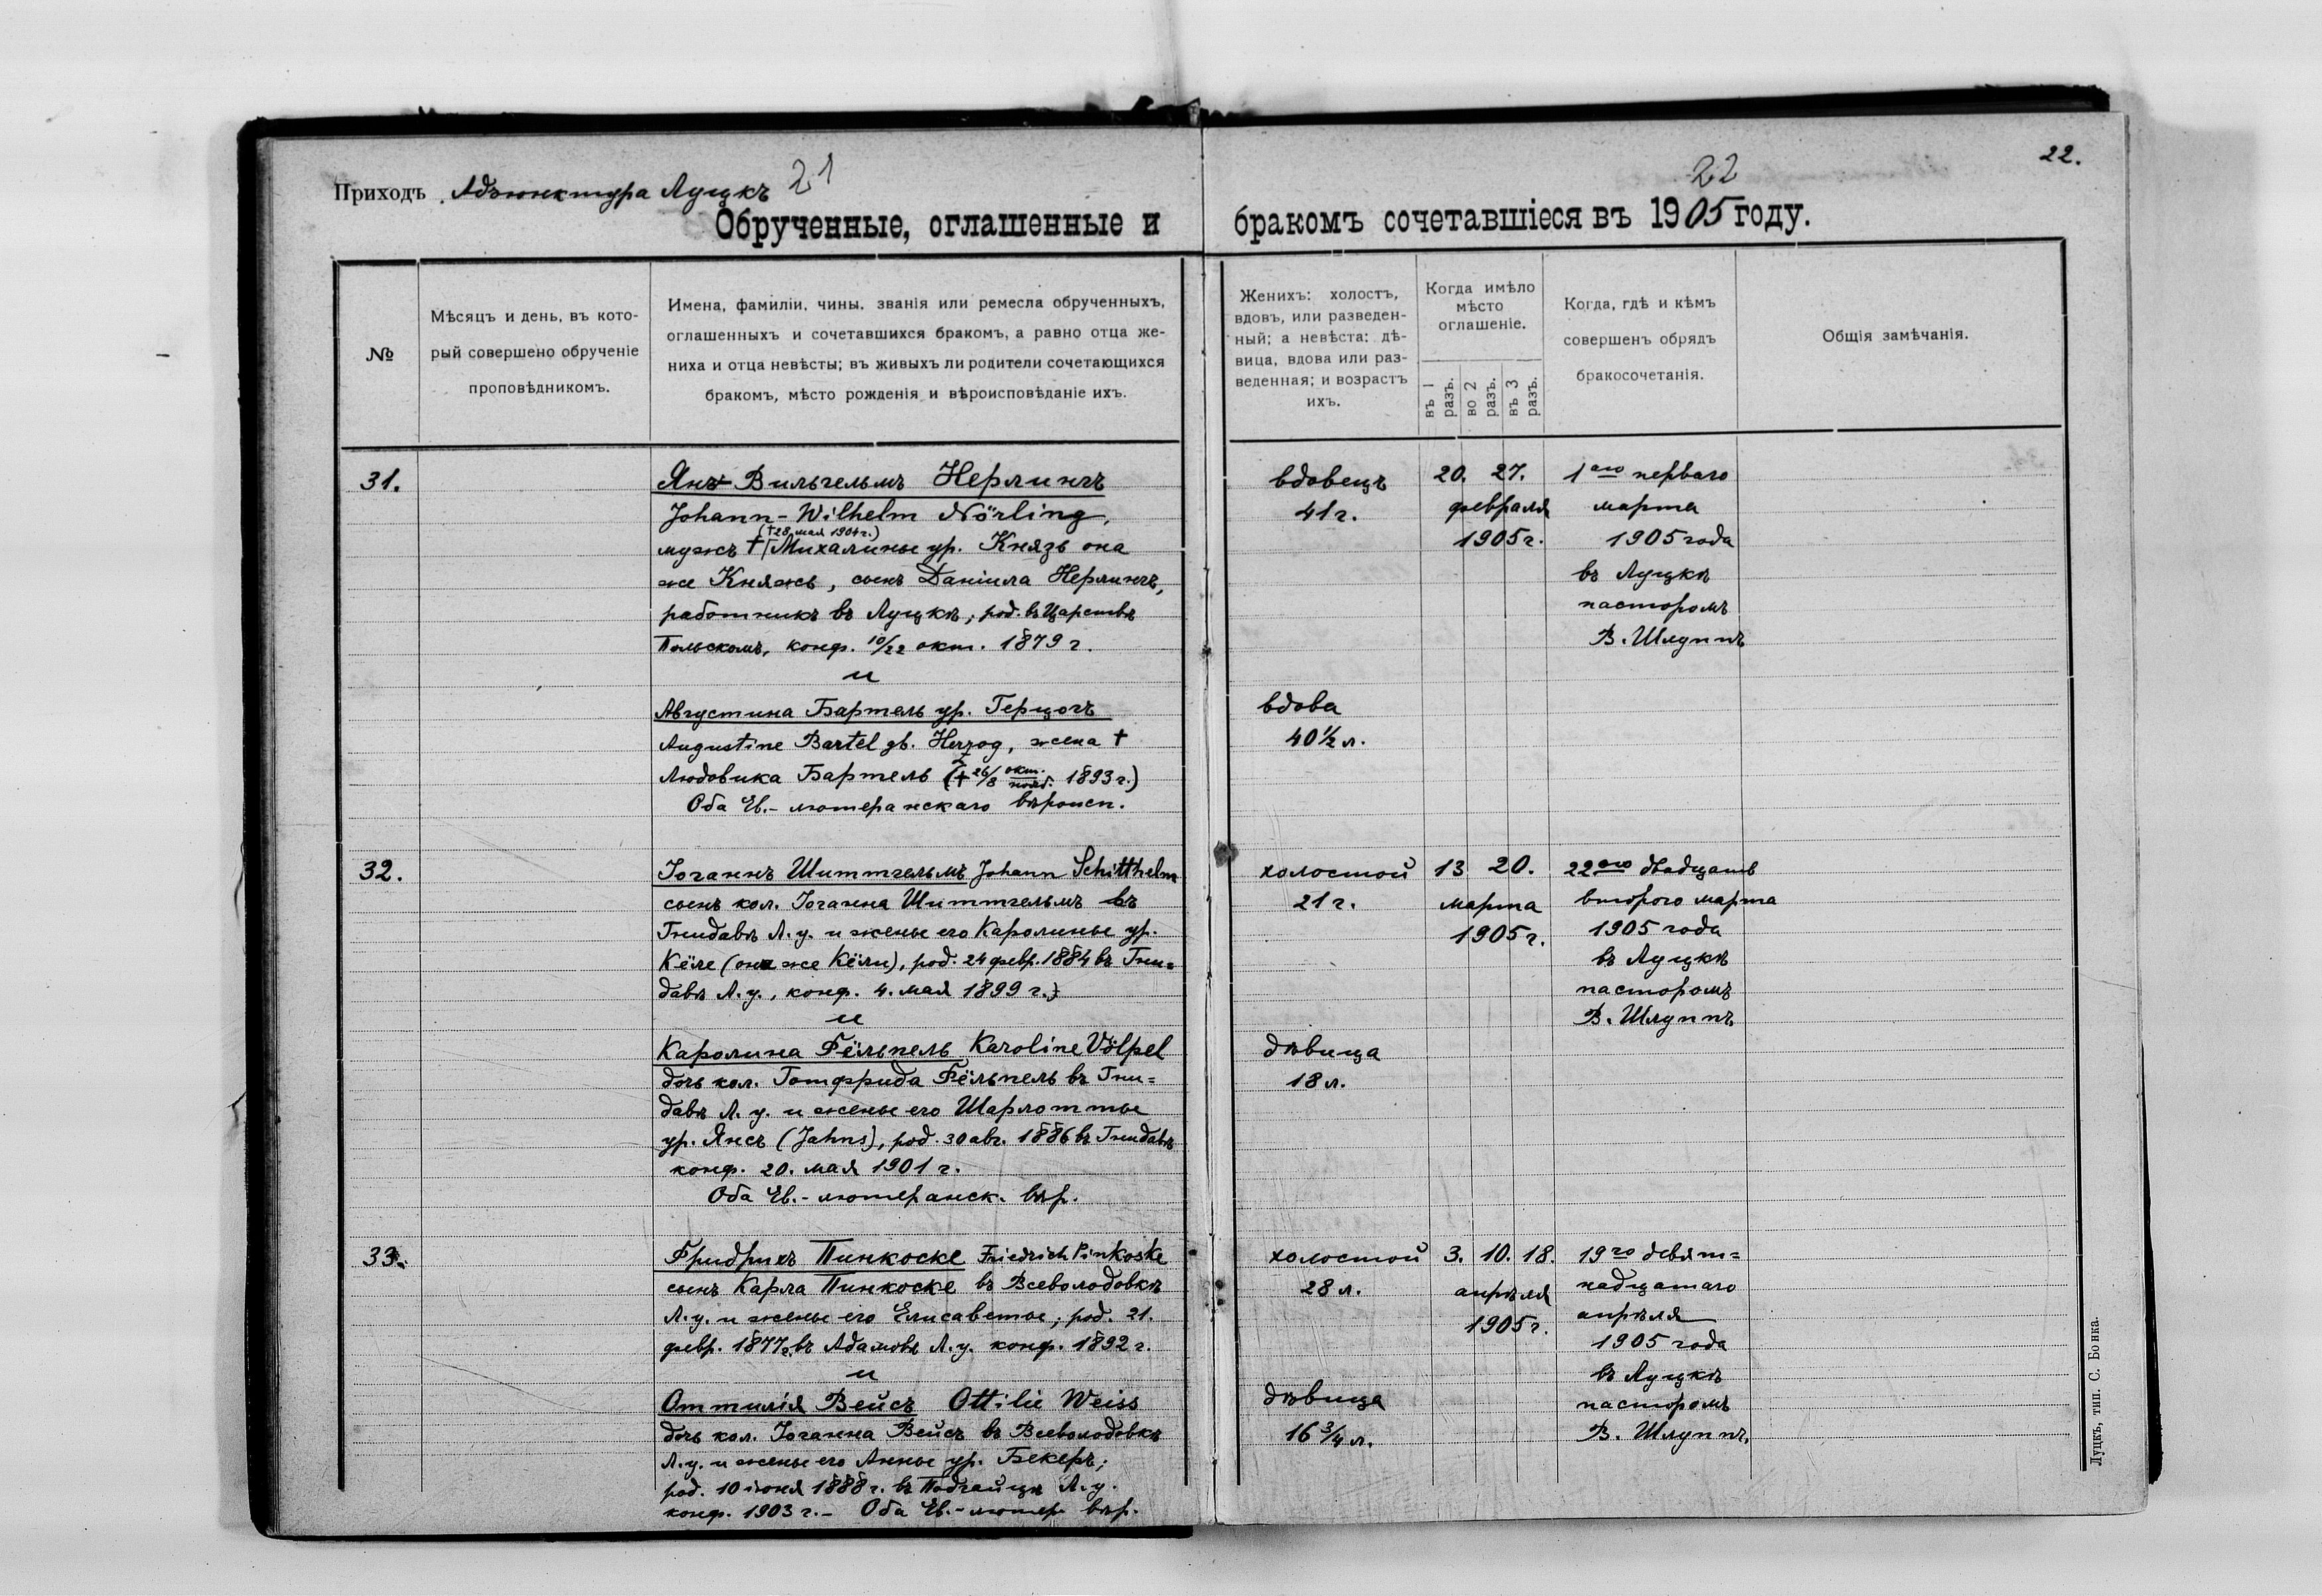 Приходъ Адъюнктура Луцкъ 21
Обрученные, оглашенные и
№
Мѣсяцъ и день, въ кото-
рый совершено обрученіе
проповѣдникомъ.
Имена, фамиліи, чины, званія или ремесла обрученныхъ,
оглашенныхъ и сочетавшихся бракомъ, а равно отца же-
ниха и отца невѣсты; въ живыхъ ли родители сочетающихся
бракомъ, мѣсто рожденія и вѣроисповѣданіе ихъ.
31.
Янъ Вильгельмъ Нерлингъ
Johann-Wilhelm Nörling,
(†28 мая 1904 г.)
мужъ † Михалины ур. Князь она
же Княжь, сынъ Даніила Нерлингъ,
работникъ въ Луцкѣ, род. въ Царствѣ
Польскомъ, конф. 10/22 окт. 1879 г.
и
Августина Бартель ур. Герцогъ
Augustine Bartel gb. Herzog, жена †
Людовика Бартель († 26/8 окт./нояб. 1893 г.)
Оба Ев.-лютеранскаго вѣроисп.
32.
Іоганнъ Шиттгельмъ Johann Schitthelm
сынъ кол. Іоганна Шиттгельмъ въ
Гнидавѣ Л. у. и жены его Каролины ур.
Кёле (она же Кёли), род. 24 февр. 1884 въ Гни=
давѣ Л. у., конф. 4. мая 1899 г.)
и
Каролина Фёльпель Karoline Völpel
дочь кол. Готфрида Фёльпель въ Гни=
давѣ Л. у. и жены его Шарлотты
ур. Янсъ (Jahns), род. 30 авг. 1886 въ Гнидавѣ
конф. 20. мая 1901 г.
Оба Ев.-лютеранск. вѣр.
33.
Фридрихъ Пинкоске Friedrich Pinkoske
сынъ Карла Пинкоске въ Всеволодовкѣ
Л. у. и жены его Елисаветы, род. 21.
февр. 1877 г. въ Адамовѣ Л. у. конф. 1892 г.
и
Оттилія Вейсъ Ottilie Weiss
дочь кол. Іоганна Вейсъ въ Всеволодовкѣ
Л. у. и жены его Анны ур. Бекеръ;
род. 10 іюня 1888 г. въ Подгайцы Л. у.
конф. 1903 г. – Оба Ев.-лютер вѣр.
22.
22
бракомъ сочетавшіеся въ 1905 году.
Женихъ: холостъ,
вдовъ, или разведен-
ный; а невѣста: дѣ-
вица, вдова или раз-
веденная; и возрастъ
ихъ.
Когда имѣло
мѣсто
оглашеніе.
въ 1 разъ.
во 2 разъ.
въ 3 разъ.
Когда, гдѣ и кѣмъ
совершенъ обрядъ
бракосочетанія.
Общія замѣчанія.
вдовецъ
41 г.
20. 27.
февраля
1905 г.
1аго перваго
марта
1905 года
въ Луцкѣ
пасторомъ
В. Шлуппъ
вдова
40 1/2 л.
холостой
21 г.
13 20.
марта
1905 г.
22аго двадцать
второго марта
1905 года
въ Луцкѣ
пасторомъ
В. Шлуппъ
дѣвица
18 л.
холостой
28 л.
3. 10. 18.
апрѣля
1905 г.
19го девят=
надцатаго
апрѣля
1905 года
въ Луцкѣ
пасторомъ
В. Шлуппъ.
дѣвица
16 3/4 л.
Луцкъ, тип. С. Бонка.